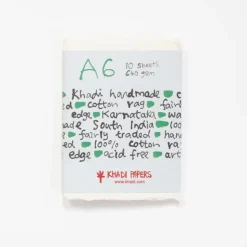 A6 10 sheets
640 gsm
Khadi handmade
ed cotton rag fairly
edge Karnataka wa
made South India 100
fairly traded hand
ed 100% cotton ra
edge acid free art
KHADI PAPERS
www.khadi.com